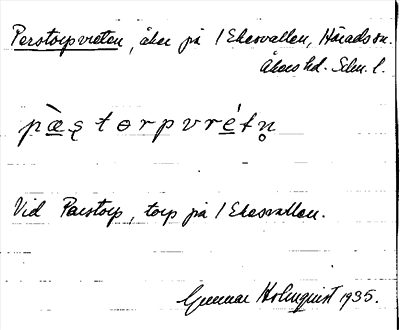 Perstorpvreten, åker på 1 Ekesvallen, Härads sn.
Åkers hd. Sdm. l.
pæ̀ştorpvrétn̥
Vid Perstorp, torp på 1 Ekesvallen.
Gunnar Holmquist 1935.